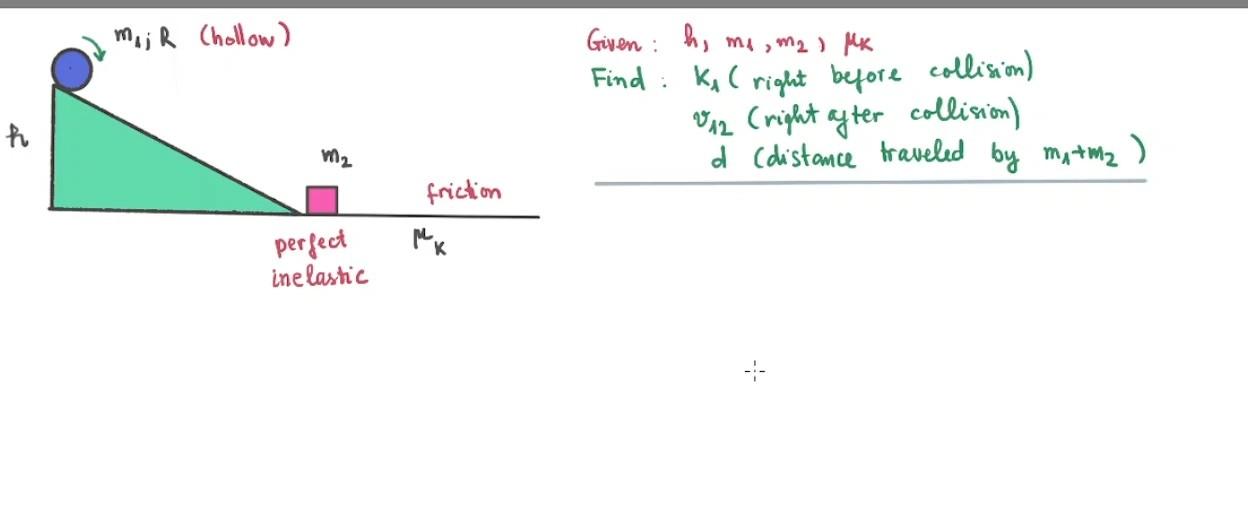 m₁; R (hollow)
h
m₂
friction
μₖ
perfect
inelastic
Given : h, m₁, m₂, μₖ
Find : K₁ (right before collision)
v₁₂ (right after collision)
d (distance traveled by m₁+m₂)